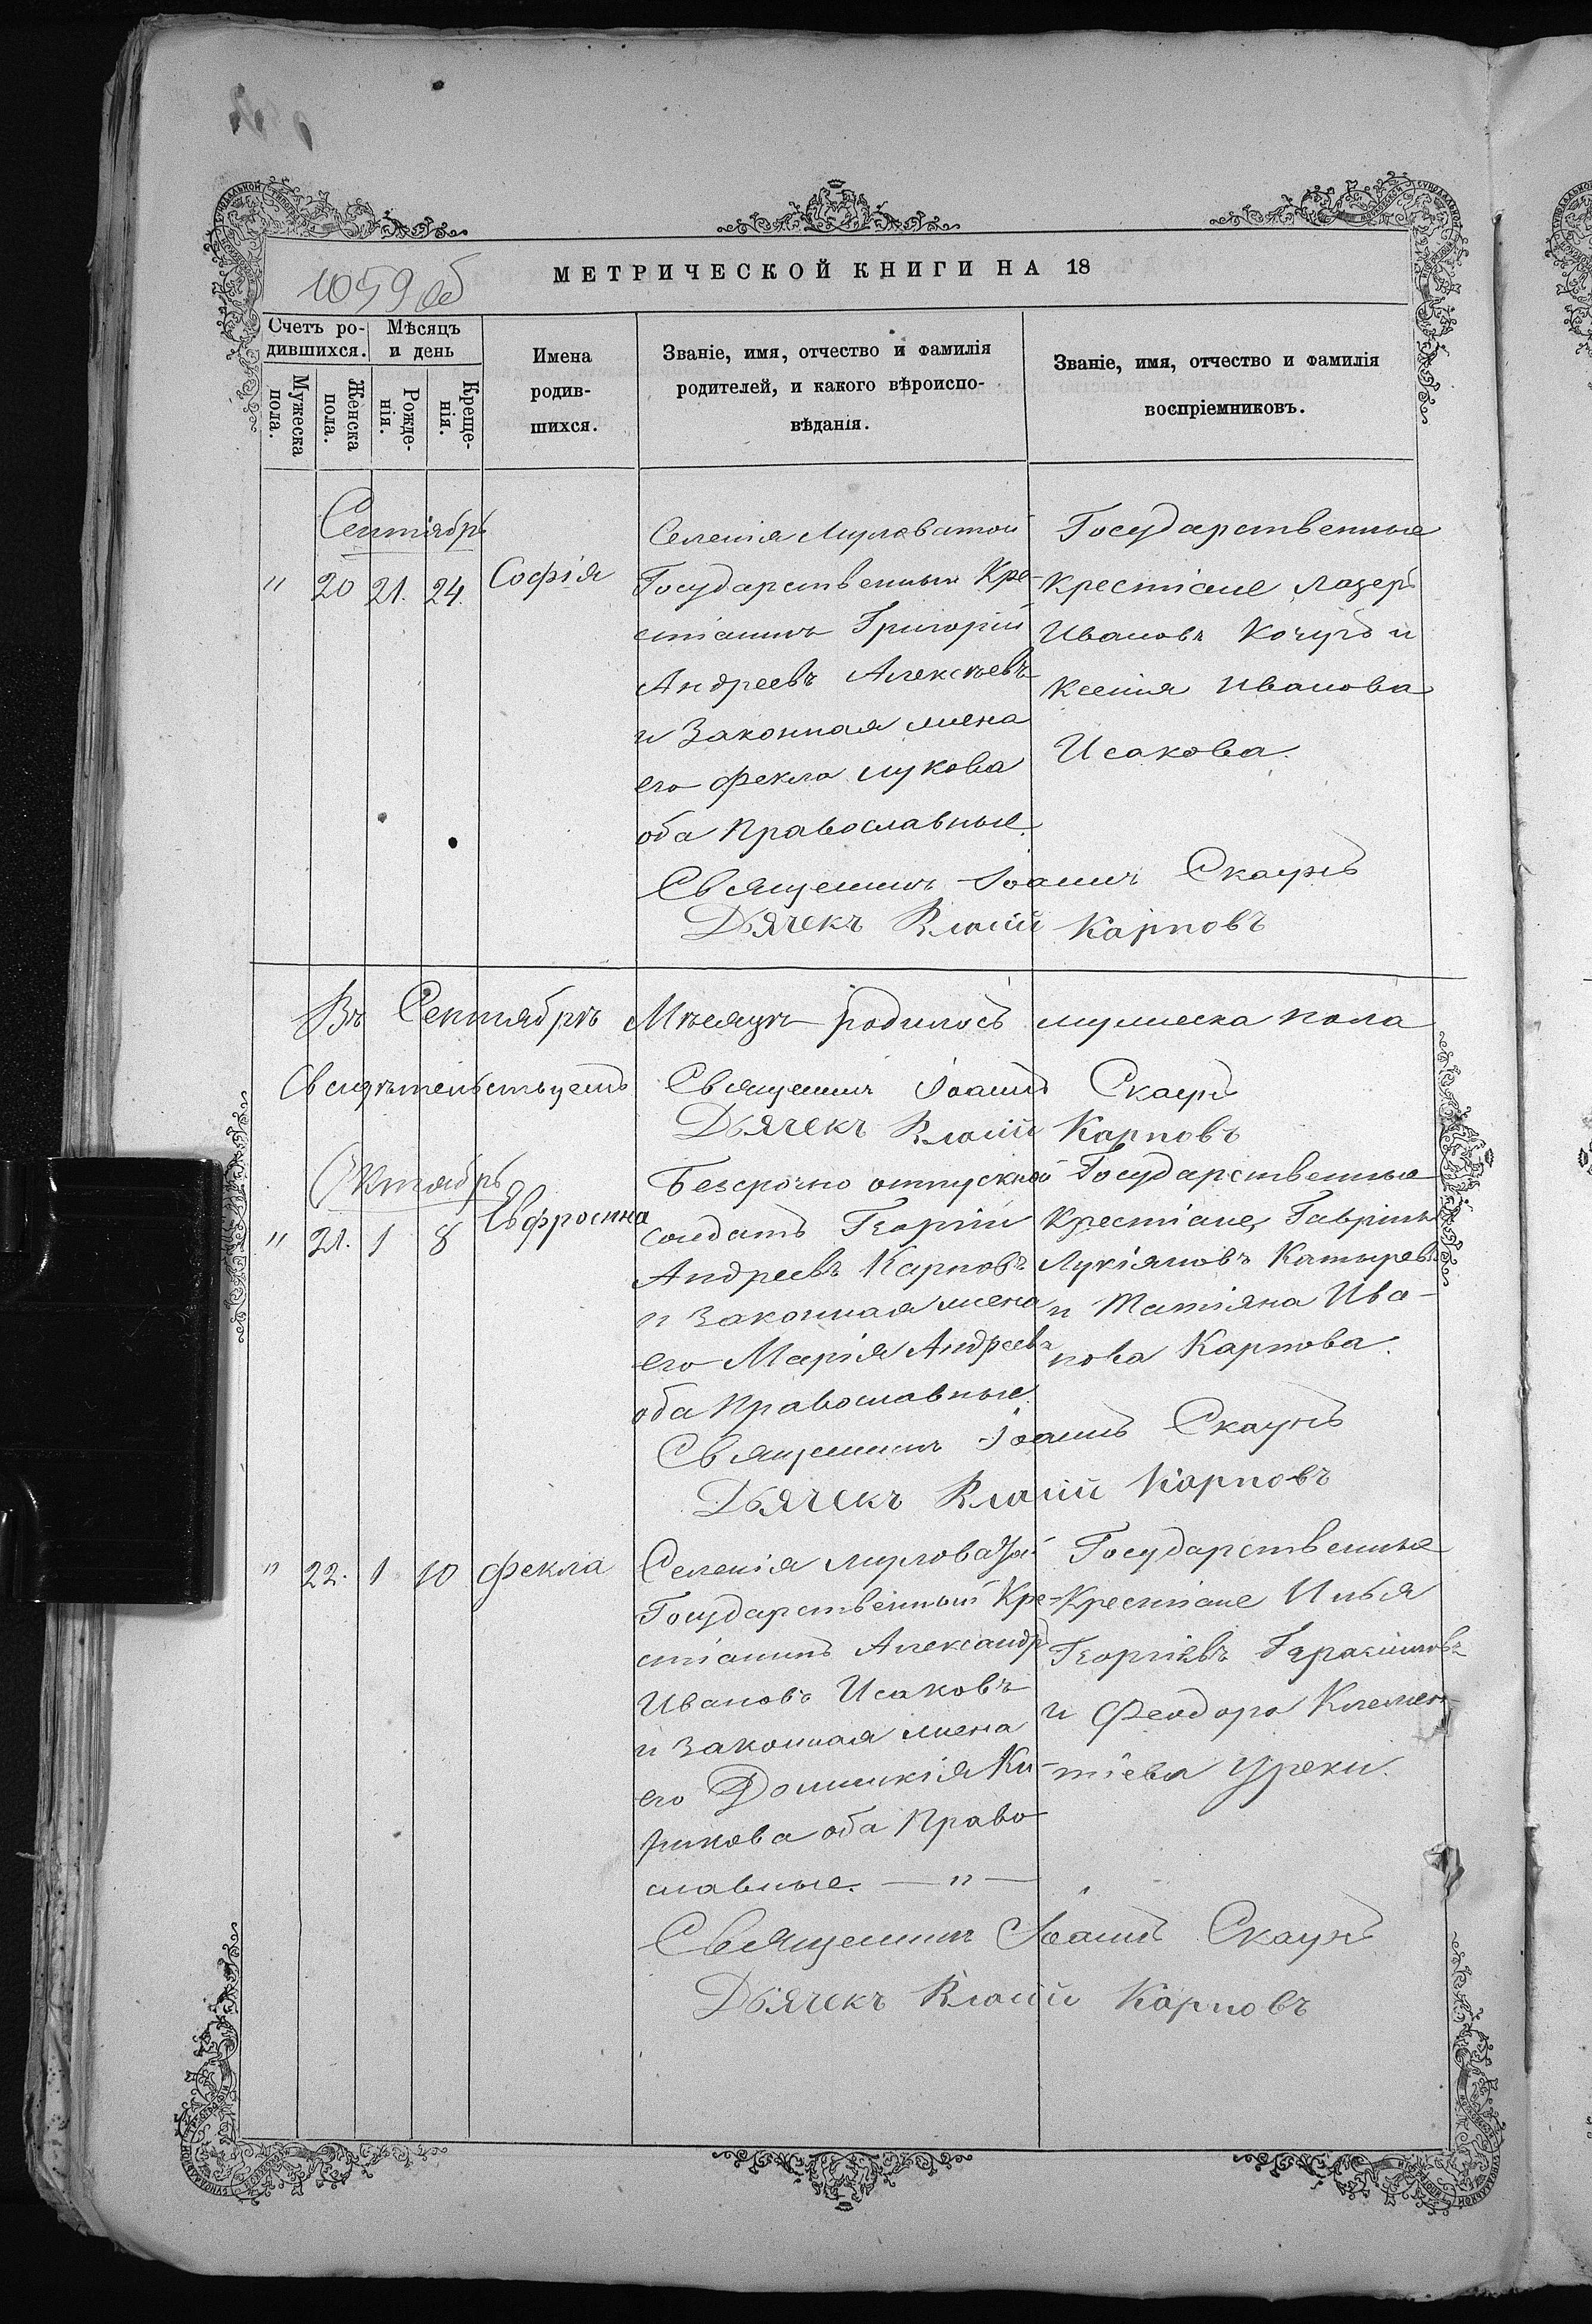 1059 об
МЕТРИЧЕСКОЙ КНИГИ НА 18
Счетъ ро-
дившихся.
Мѣсяцъ
и день
Мужеска
пола.
Женска
пола.
Рожде-
нія.
Креще-
нія.
Имена
родив-
шихся.
Званіе, имя, отчество и фамилія
родителей, и какого вѣроиспо-
вѣданія.
Званіе, имя, отчество и фамилія
воспріемниковъ.
Сентябрь
" 20 21. 24. Софія
Селенія Мурловатой
Государственный Кре-
стіанинъ Григорій
Андреевъ Алексѣевъ
и Законная жена
его Фекла Лукова
оба Православные.
Государственные
Крестіане Лазерь
Ивановъ Кочугъ и
Ксенія Иванова
Исакова.
Священникъ Іоаннъ Скаунъ
Дьячекъ Власій Карповъ
Въ Сентябрѣ Мѣсяцѣ родилось мужеска пола
Свидѣтельствуемъ Священникъ Іоаннъ Скаунъ
Дьячекъ Власій Карповъ
Октябрь
" 21. 1 8 Евфросина
Безсрочно отпускной
солдатъ Георгій
Андреевъ Карповъ
и Законная жена
его Марія Андреева
оба Православные.
Государственные
Крестіане, Гавріилъ
Лукіяновъ Катыревъ
и Татіяна Ива-
нова Карпова.
Священникъ Іоаннъ Скаунъ
Дьячекъ Власій Карповъ
" 22. 1 10 Фекла
Селенія Мурловатой
Государственный Кре-
стіанинъ Александръ
Ивановъ Исаковъ
и Законная жена
его Домникія Ки-
рикова оба Право
славные. — " —
Государственные
Крестіане Илья
Георгіевъ Герасимовъ
и Феодора Клемен-
тіева Уреки.
Священникъ Іоаннъ Скаунъ
Дьячекъ Власій Карповъ